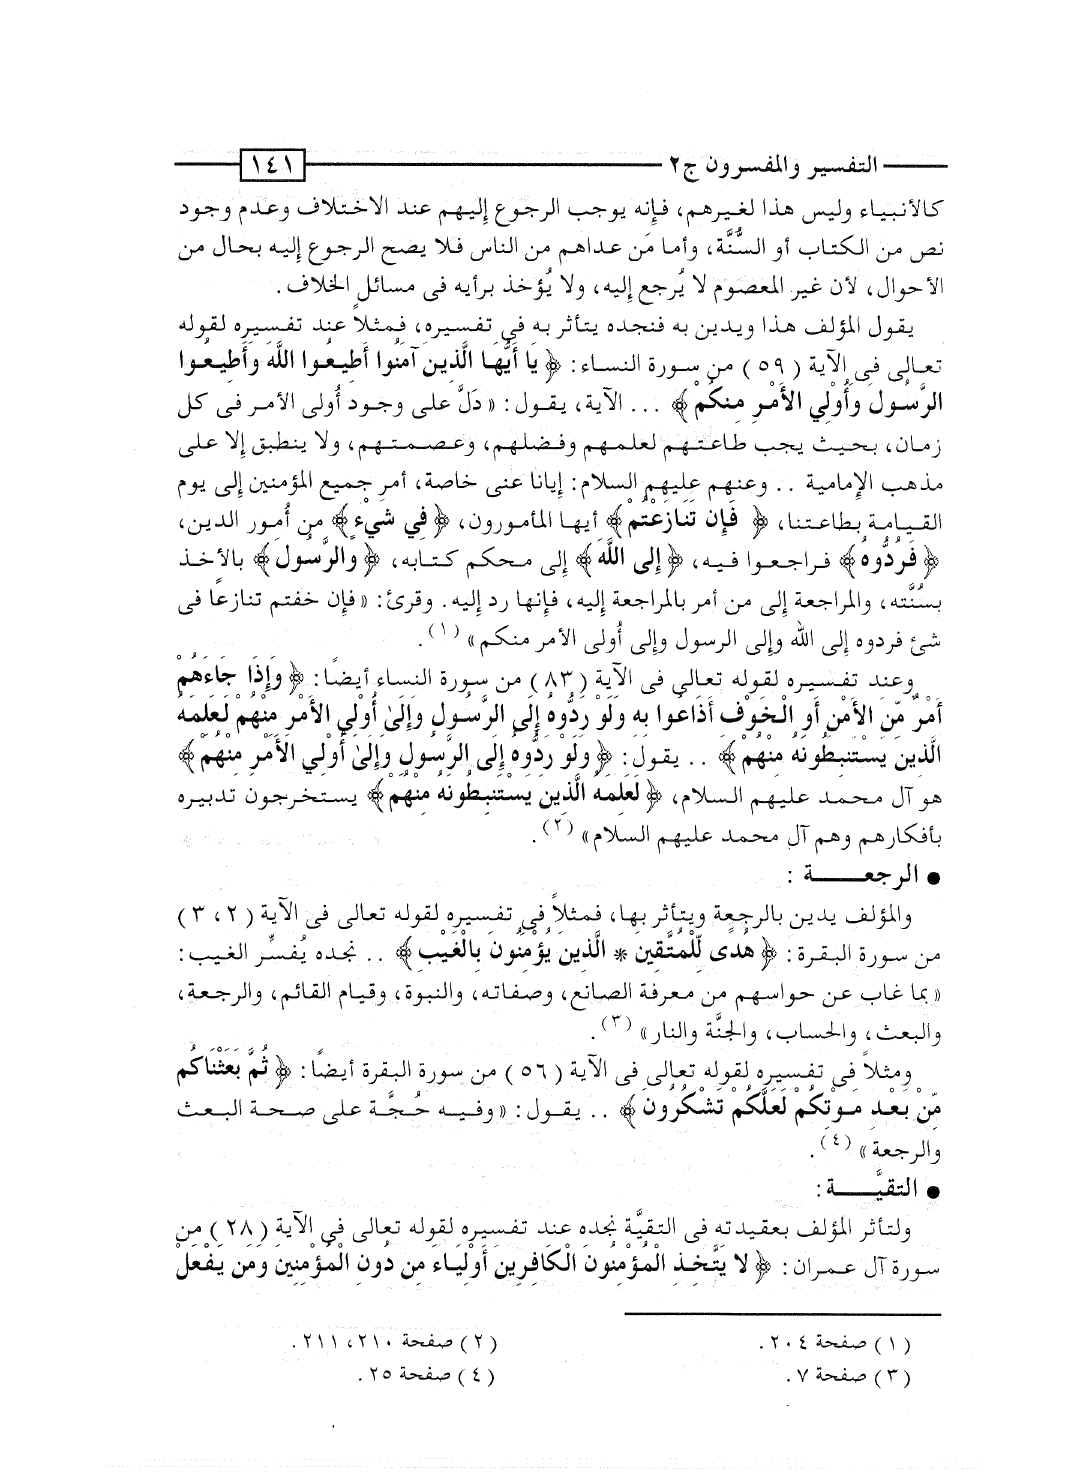 التفسير والمفسرون ج٢ ١٤١
كالأنبياء وليس هذا لغيرهم، فإنه يوجب الرجوع إليهم عند الاختلاف وعدم وجود
نص من الكتاب أو السُّنَّة، وأما مَن عداهم من الناس فلا يصح الرجوع إليه بحال من
الأحوال، لأن غير المعصوم لا يُرجع إليه، ولا يُؤخذ برأيه فى مسائل الخلاف.
يقول المؤلف هذا ويدين به فنجده يتأثر به فى تفسيره، فمثلاً عند تفسيره لقوله
تعالى فى الآية (٥٩) من سورة النساء: ﴿يَا أَيُّهَا الَّذِينَ آمَنُوا أَطِيعُوا اللَّهَ وَأَطِيعُوا
الرَّسُولَ وَأُوْلِي الأَمْرِ مِنكُمْ﴾ ... الآية، يقول: «دَلَّ على وجود أُولى الأمر فى كل
زمان، بحيث يجب طاعتهم لعلمهم وفضلهم، وعصمتهم، ولا ينطبق إلا على
مذهب الإمامية .. وعنهم عليهم السلام: إيانا عنى خاصة، أمر جميع المؤمنين إلى يوم
القيامة بطاعتنا، ﴿فَإِن تَنَازَعْتُمْ﴾ أيها المأمورون، ﴿فِي شَيْءٍ﴾ من أُمور الدين،
﴿فَرُدُّوهُ﴾ فراجعوا فيه، ﴿إِلَى اللَّهِ﴾ إلى محكم كتابه، ﴿وَالرَّسُولِ﴾ بالأخذ
بسُنَّته، والمراجعة إلى من أمر بالمراجعة إليه، فإنها رد إليه. وقرئ: «فإن خفتم تنازعاً فى
شئ فردوه إلى الله وإلى الرسول وإلى أُولى الأمر منكم» (١).
وعند تفسيره لقوله تعالى فى الآية (٨٣) من سورة النساء أيضاً: ﴿وَإِذَا جَاءَهُمْ
أَمْرٌ مِّنَ الأَمْنِ أَوِ الْخَوْفِ أَذَاعُوا بِهِ وَلَوْ رَدُّوهُ إِلَى الرَّسُولِ وَإِلَىٰ أُوْلِي الأَمْرِ مِنْهُمْ لَعَلِمَهُ
الَّذِينَ يَسْتَنبِطُونَهُ مِنْهُمْ﴾ .. يقول: ﴿وَلَوْ رَدُّوهُ إِلَى الرَّسُولِ وَإِلَىٰ أُوْلِي الأَمْرِ مِنْهُمْ﴾
هو آل محمد عليهم السلام، ﴿لَعَلِمَهُ الَّذِينَ يَسْتَنبِطُونَهُ مِنْهُمْ﴾ يستخرجون تدبيره
بأفكارهم وهم آل محمد عليهم السلام» (٢).
• الرجعـــة :
والمؤلف يدين بالرجعة ويتأثر بها، فمثلاً فى تفسيره لقوله تعالى فى الآية (٢، ٣)
من سورة البقرة: ﴿هُدًى لِّلْمُتَّقِينَ * الَّذِينَ يُؤْمِنُونَ بِالْغَيْبِ﴾ .. نجده يُفسِّر الغيب:
«بما غاب عن حواسهم من معرفة الصانع، وصفاته، والنبوة، وقيام القائم، والرجعة،
والبعث، والحساب، والجنَّة والنار» (٣).
ومثلاً فى تفسيره لقوله تعالى فى الآية (٥٦) من سورة البقرة أيضاً: ﴿ثُمَّ بَعَثْنَاكُم
مِّنْ بَعْدِ مَوْتِكُمْ لَعَلَّكُمْ تَشْكُرُونَ﴾ .. يقول: «وفيه حُجَّة على صحة البعث
والرجعة» (٤).
• التقيَّـــة:
ولتأثر المؤلف بعقيدته فى التقيَّة نجده عند تفسيره لقوله تعالى فى الآية (٢٨) من
سورة آل عمران: ﴿لا يَتَّخِذِ الْمُؤْمِنُونَ الْكَافِرِينَ أَوْلِيَاءَ مِن دُونِ الْمُؤْمِنِينَ وَمَن يَفْعَلْ
(١) صفحة ٢٠٤. (٢) صفحة ٢١٠، ٢١١.
(٣) صفحة ٧. (٤) صفحة ٢٥.